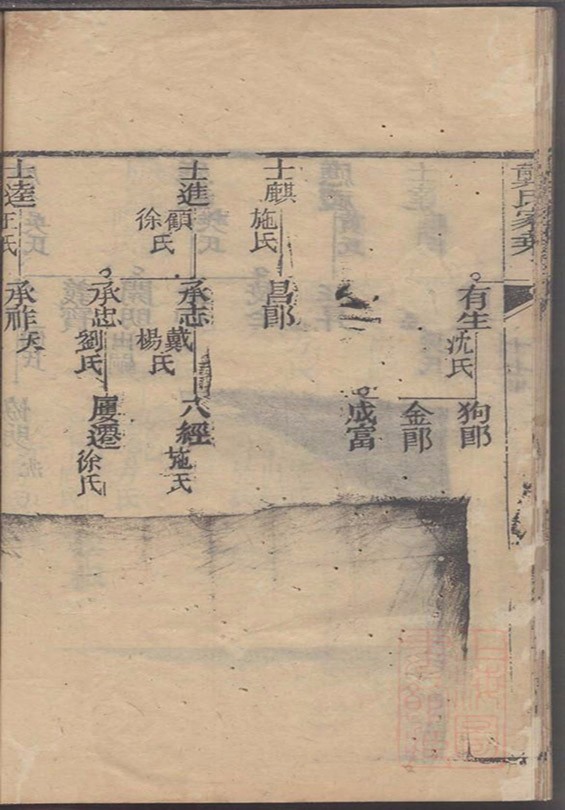 氏家乘
有生
沈氏
狗郎
金郎
成富
士麒
施氏
昌郎
士進
顧氏
徐氏
承志
戴氏
楊氏
六經
施氏
承忠
劉氏
慶遷
徐氏
士達
汪氏
承祚
夭